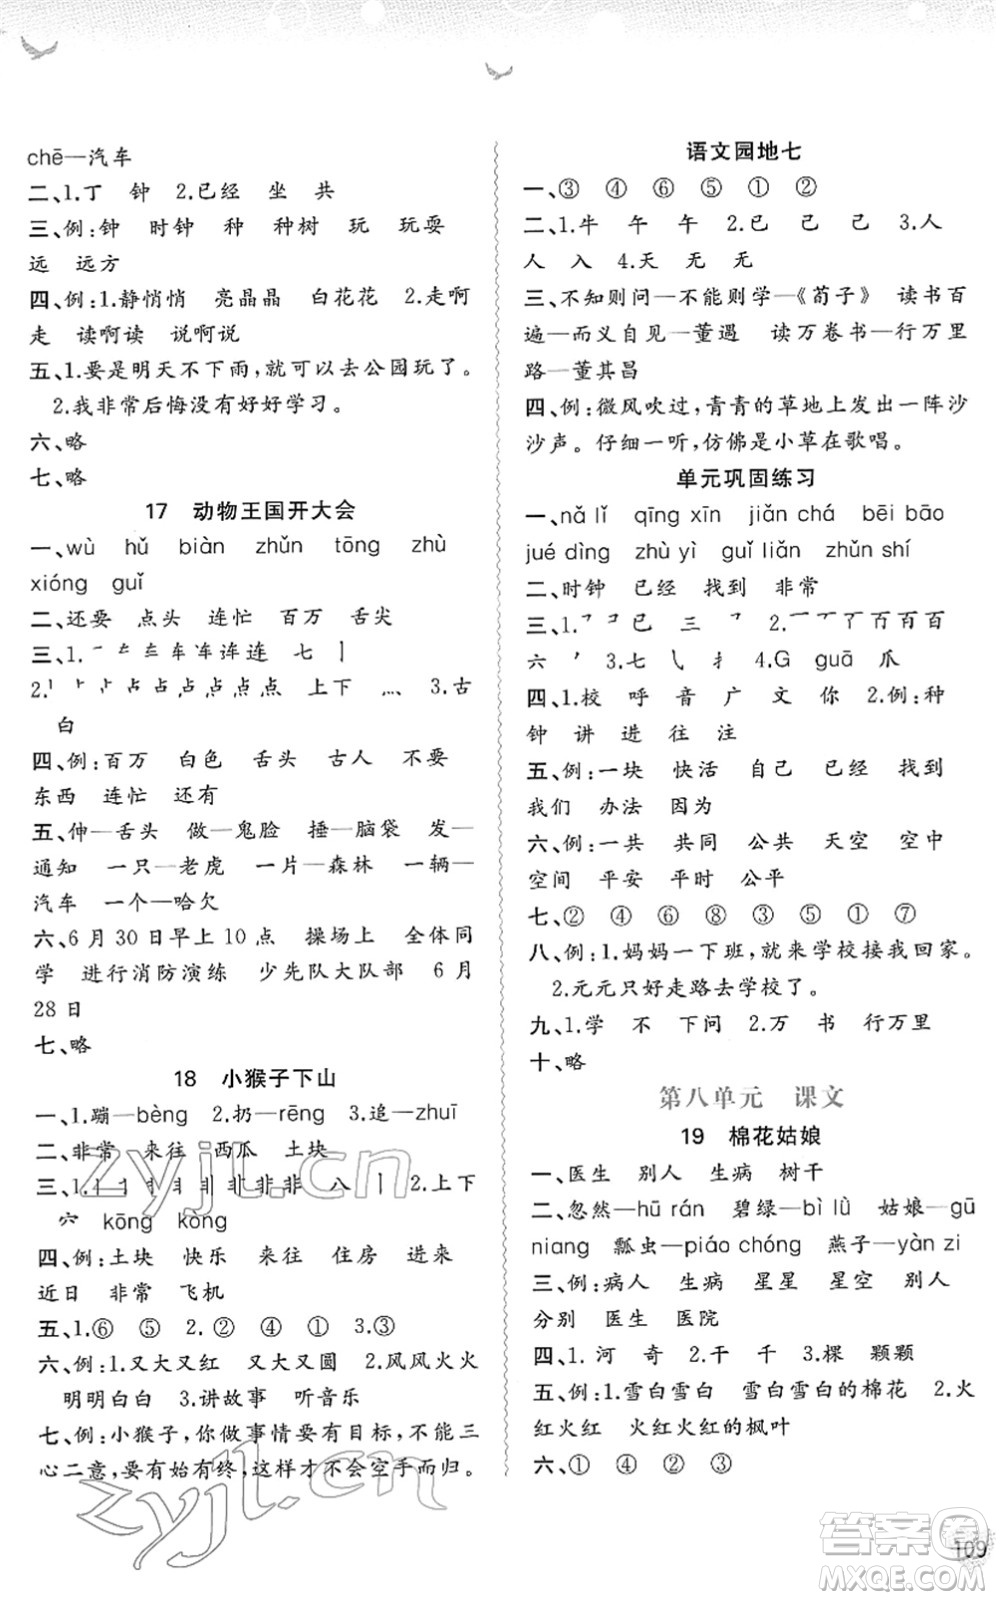 chē—汽车
二、1.丁 钟 2.已经 坐 共
三、例:钟 时钟 种 种树 玩 玩耍
远 远方
四、例:1.静悄悄 亮晶晶 白花花 2.走啊
走 读啊读 说啊说
五、1.要是明天不下雨,就可以去公园玩了。
2.我非常后悔没有好好学习。
六、略
七、略
17 动物王国开大会
一、wù hǔ biàn zhǔn tōng zhù
xióng guǐ
二、还要 点头 连忙 百万 舌尖
三、1. 车 连 七 丨
2. 占 点 上下 灬 3.古
白
四、例:百万 白色 舌头 古人 不要
东西 连忙 还有
五、伸—舌头 做—鬼脸 捶—脑袋 发—
通知 一只—老虎 一片—森林 一辆—
汽车 一个—哈欠
六、6月30日早上10点 操场上 全体同
学 进行消防演练 少先队大队部 6月
28日
七、略
18 小猴子下山
一、1.蹦—bèng 2.扔—rēng 3.追—zhuī
二、非常 来往 西瓜 土块
三、1. 非 八 丨 2.上下
六 kōng kòng
四、例:土块 快乐 来往 住房 进来
近日 非常 飞机
五、1.⑥ ⑤ 2.② ④ ① 3.③
六、例:1.又大又红 又大又圆 2.风风火火
明明白白 3.讲故事 听音乐
七、例:小猴子,你做事情要有目标,不能三
心二意,要有始有终,这样才不会空手而归。
语文园地七
一、③ ④ ⑥ ⑤ ① ②
二、1.牛 午 午 2.已 己 己 3.人
人 入 4.天 无 无
三、不知则问—不能则学—《荀子》 读书百
遍—而义自见—董遇 读万卷书—行万里
路—董其昌
四、例:微风吹过,青青的草地上发出一阵沙
沙声。仔细一听,仿佛是小草在歌唱。
单元巩固练习
一、nǎ lǐ qīng xīn jiǎn chá bēi bāo
jué dìng zhù yì guǐ liǎn zhǔn shí
二、时钟 已经 找到 非常
三、1. 已 三 2. 百
六 3.七 4.G guā 爪
四、1.校 呼 音 广 文 你 2.例:种
钟 讲 进 往 注
五、例:一块 快活 自己 已经 找到
我们 办法 因为
六、例:一共 共同 公共 天空 空中
空间 平安 平时 公平
七、② ④ ⑥ ⑧ ③ ⑤ ① ⑦
八、例:1.妈妈一下班,就来学校接我回家。
2.元元只好走路去学校了。
九、1.学 不 下问 2.万 书 行万里
十、略
第八单元 课文
19 棉花姑娘
一、医生 别人 生病 树干
二、忽然—hū rán 碧绿—bì lǜ 姑娘—gū
niang 瓢虫—piáo chóng 燕子—yàn zi
三、例:病人 生病 星星 星空 别人
分别 医生 医院
四、1.河 奇 2.干 千 3.棵 颗颗
五、例:1.雪白雪白 雪白雪白的棉花 2.火
红火红 火红火红的枫叶
六、① ④ ② ③
zyjl.cn
zyjl.cn
答案卷
MXQE.COM
109